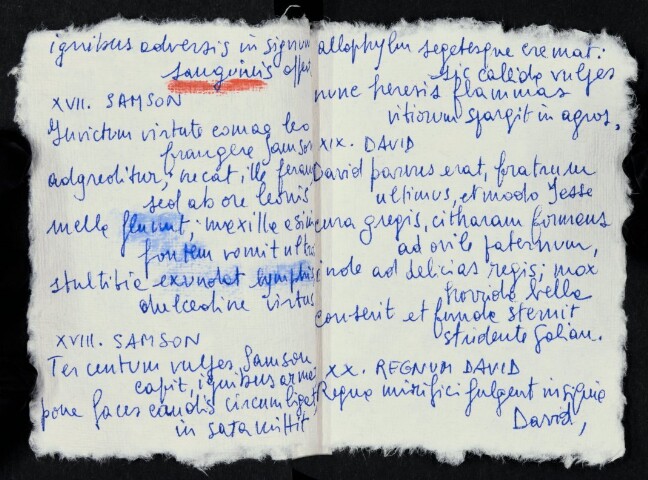 ignibus adversis in signum
sanguinis offert
XVII. SAMSON
Invictum virtute comae leo
frangere Samson
adgreditur; necat ille feram
sed ab ore leonis
mella fluunt; maxilla asini
fontem vomit ultro
stultitia exundat lymphis
dulcedine virtus
XVIII. SAMSON
Ter centum vulpes Samson
capit, ignibus armat
pone faces caudis circumligat
in sata mittit
allophylum segetesque cremat:
sic callida vulpes
nunc heresis flammas
vitiorum spargit in agros.
XIX. DAVID
David parvus erat, fratrum
ultimus, et modo Jesse
cura gregis, citharam formans
ad ovile paternum,
inde ad delicias regis; mox
horrida bella
conserit et funda sternit
stridente Golian.
XX. REGNUM DAVID
Regna mirifici fulgent insignia
David,